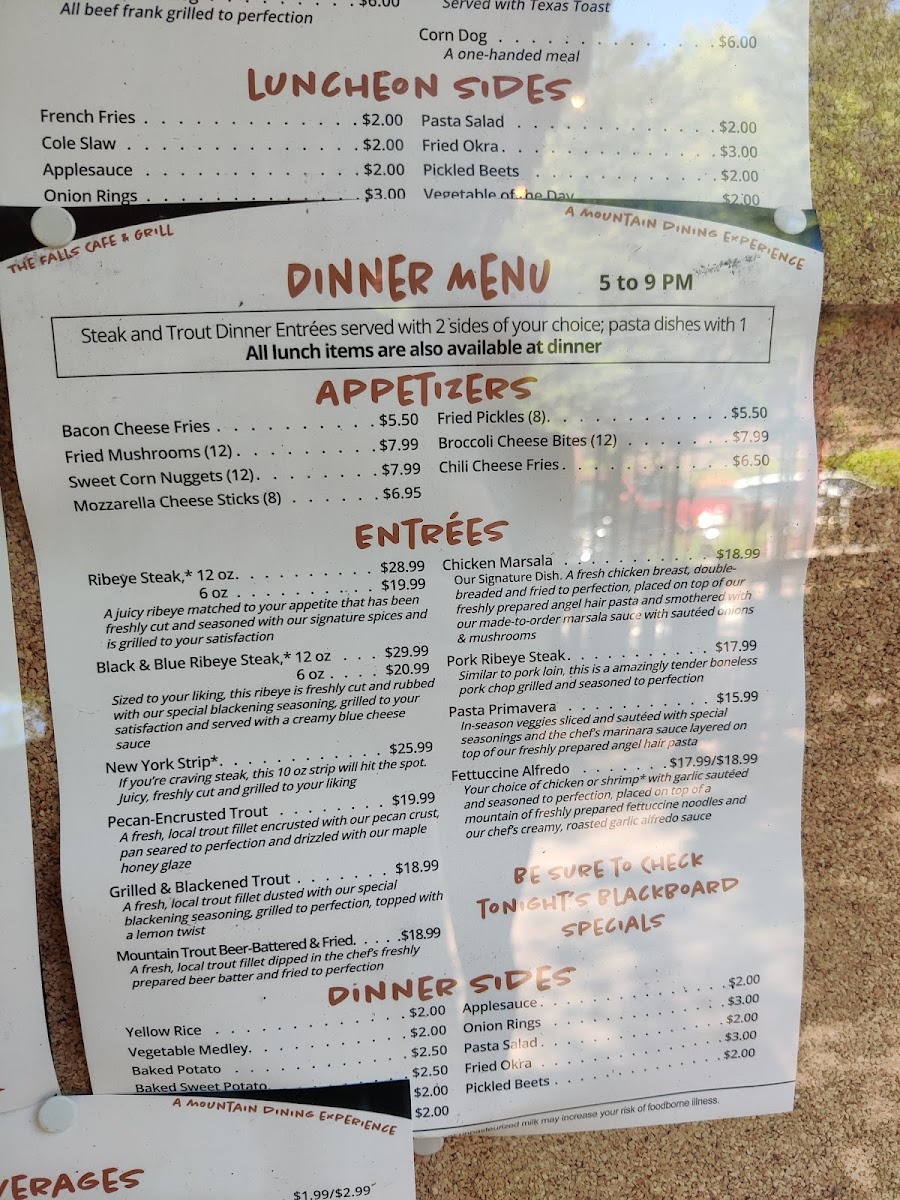 $6.00
All beef frank grilled to perfection
Served with Texas Toast
Corn Dog . . . . . . . . . . . . . $6.00
A one-handed meal
LUNCHEON SIDES
French Fries . . . . . . . . . . . . . $2.00
Cole Slaw . . . . . . . . . . . . . . $2.00
Applesauce . . . . . . . . . . . . . $2.00
Onion Rings . . . . . . . . . . . . . $3.00
Pasta Salad . . . . . . . . . . . . $2.00
Fried Okra . . . . . . . . . . . . . $3.00
Pickled Beets . . . . . . . . . . . $2.00
Vegetable of the Day $2.00
THE FALLS CAFE & GRILL
A MOUNTAIN DINING EXPERIENCE
DINNER MENU 5 to 9 PM
Steak and Trout Dinner Entrées served with 2 sides of your choice; pasta dishes with 1
All lunch items are also available at dinner
APPETIZERS
Bacon Cheese Fries . . . . . . . . . . $5.50
Fried Mushrooms (12) . . . . . . . . . $7.99
Sweet Corn Nuggets (12). . . . . . . . $7.99
Mozzarella Cheese Sticks (8) . . . . . . $6.95
Fried Pickles (8). . . . . . . . . . . . $5.50
Broccoli Cheese Bites (12) . . . . . . . $7.99
Chili Cheese Fries . . . . . . . . . . . $6.50
ENTRÉES
Ribeye Steak,* 12 oz. . . . . . . . . . $28.99
6 oz . . . . . . . . . $19.99
A juicy ribeye matched to your appetite that has been
freshly cut and seasoned with our signature spices and
is grilled to your satisfaction
Black & Blue Ribeye Steak,* 12 oz . . . $29.99
6 oz . . . . $20.99
Sized to your liking, this ribeye is freshly cut and rubbed
with our special blackening seasoning, grilled to your
satisfaction and served with a creamy blue cheese
sauce
New York Strip*. . . . . . . . . . . . $25.99
If you're craving steak, this 10 oz strip will hit the spot.
Juicy, freshly cut and grilled to your liking
Pecan-Encrusted Trout . . . . . . . . $19.99
A fresh, local trout fillet encrusted with our pecan crust,
pan seared to perfection and drizzled with our maple
honey glaze
Grilled & Blackened Trout . . . . . . . $18.99
A fresh, local trout fillet dusted with our special
blackening seasoning, grilled to perfection, topped with
a lemon twist
Mountain Trout Beer-Battered & Fried. . . . .$18.99
A fresh, local trout fillet dipped in the chef's freshly
prepared beer batter and fried to perfection
Chicken Marsala . . . . . . . . . . . $18.99
Our Signature Dish. A fresh chicken breast, double-
breaded and fried to perfection, placed on top of our
freshly prepared angel hair pasta and smothered with
our made-to-order marsala sauce with sautéed onions
& mushrooms
Pork Ribeye Steak. . . . . . . . . . . $17.99
Similar to pork loin, this is a amazingly tender boneless
pork chop grilled and seasoned to perfection
Pasta Primavera . . . . . . . . . . . $15.99
In-season veggies sliced and sautéed with special
seasonings and the chef's marinara sauce layered on
top of our freshly prepared angel hair pasta
Fettuccine Alfredo . . . . . . . $17.99/$18.99
Your choice of chicken or shrimp* with garlic sautéed
and seasoned to perfection, placed on top of a
mountain of freshly prepared fettuccine noodles and
our chef's creamy, roasted garlic alfredo sauce
BE SURE TO CHECK
TONIGHT'S BLACKBOARD
SPECIALS
DINNER SIDES
Yellow Rice . . . . . . . . . . . . $2.00
Vegetable Medley. . . . . . . . . . $2.00
Baked Potato . . . . . . . . . . . $2.50
Baked Sweet Potato. $2.50
$2.00
$2.00
Applesauce . . . . . . . . . . . . $2.00
Onion Rings . . . . . . . . . . . . $3.00
Pasta Salad . . . . . . . . . . . . $2.00
Fried Okra . . . . . . . . . . . . $3.00
Pickled Beets . . . . . . . . . . . $2.00
milk may increase your risk of foodborne illness.
A MOUNTAIN DINING EXPERIENCE
VERAGES
$1.99/$2.99